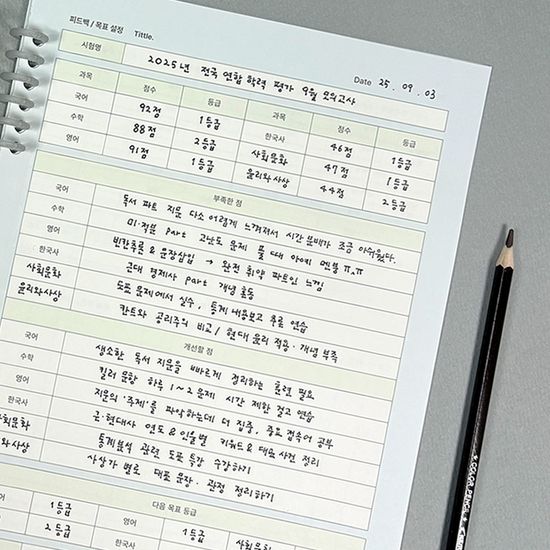 피드백 / 목표 설정 Tittle.
Date 25 . 09 . 03
시험명 2025년 전국 연합 학력 평가 9월 모의고사
과목 점수 등급 과목 점수 등급
국어 92점 1등급 한국사 46점 1등급
수학 88점 2등급 사회문화 47점 1등급
영어 91점 1등급 윤리와사상 44점 2등급
부족한 점
국어 독서 파트 지문 다소 어렵게 느껴져서 시간 분배가 조금 아쉬웠다.
수학 미·적분 part 고난도 문제 풀 때 아예 멘붕 ㅠㅠ
영어 빈칸추론 & 문장삽입 → 완전 취약 파트인 느낌
한국사 근대 경제사 part 개념 혼동
사회문화 도표 문제에서 실수, 통계 내용보고 추론 연습
윤리와사상 칸트와 공리주의 비교 / 현대 윤리 적용·개념 부족
개선할 점
국어 생소한 독서 지문을 빠르게 정리하는 훈련 필요
수학 킬러 문항 하루 1~2문제 시간 제한 걸고 연습
영어 지문의 '주제'를 파악하는데 더 집중, 중요 접속어 공부
한국사 근·현대사 연도 & 인물별 키워드 & 대표 사건 정리
사회문화 통계분석 관련 도표 특강 수강하기
윤리와사상 사상가 별로 대표 문장·관점 정리하기
다음 목표 등급
국어 1등급 영어 1등급 사회문화
2등급 한국사
COLOR PENCIL